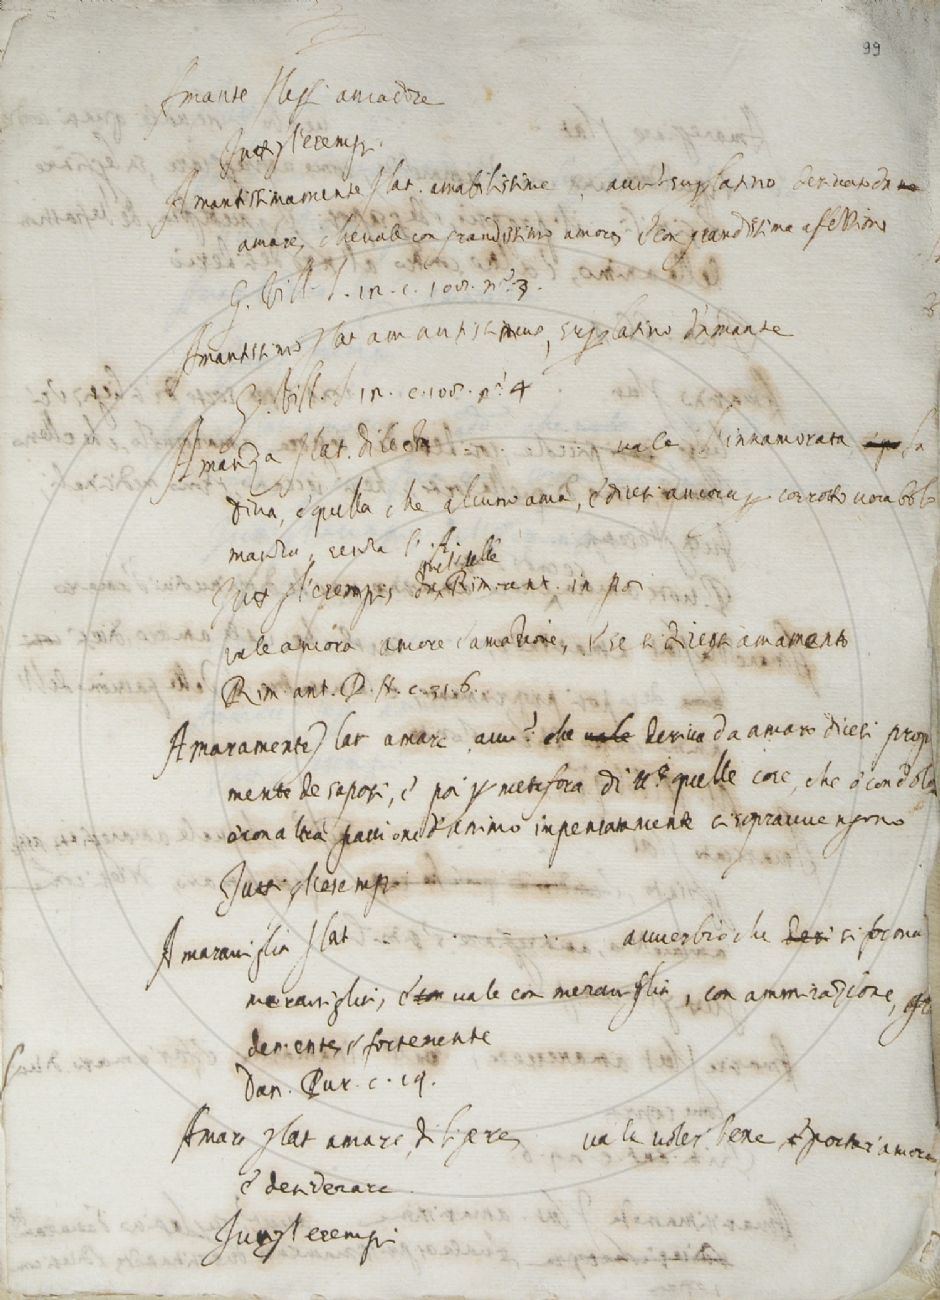 99
Amante] leggi amadore
Tutti gl'esempi.
Amantissimamente] lat. amabilissime, auu.º superlatiuo deriuato da
amare, che uale con grandissimo amore, e con grandissima affettione
G. Vill. l. 12. c. 108. nº. 3.
Amantissimo] lat amantissimus, superlatiuo d'amante
G. Vill. l. 12. c. 108. nº. 4
Amanza] lat. dilecta uale l'innamorata, la
diua, e quella che alcuno ama, e dicesi ancora per corrotto uocabolo
manza, senza l'A.
Tutti gl'esempi, da quelle Rim. ant. in poi
uale ancora amore e amazione, e se si dicesse amamento
Rim. ant. P. N. c. 31. 6.
Amaramente] lat amare, auu.º che uale deriua da amaro dicesi prop
mente de sapori, e poi per metafora di tt.e quelle cose, che o con dolo
o con altra passione d'animo impensatamente ci soprauuengono
Tutti gl'esempi
Amarauiglia] lat auuerbio che deri si forma
marauiglia, e con uale con merauiglia, con ammirazione,
demente, e fortemente
Dan. Pur. c. 19.
Amare] lat amare, diligere, uale uoler bene, e portar amore
e desiderare
Tutti gl'esempi